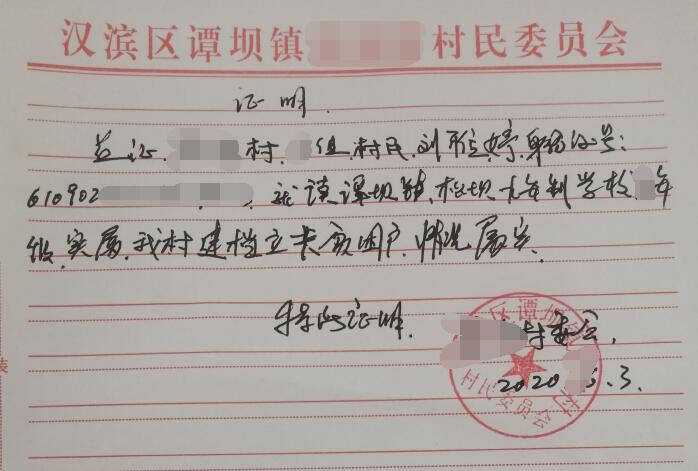 汉滨区谭坝镇 村民委员会
证明
兹证 村 组村民刘 婷身份证号:
610902 就读谭坝镇松坝九年制学校 年
级,实属我村建档立卡贫困户,情况属实
特此证明.
村委会,
2020 .3
区谭坝镇
村民委员会
装